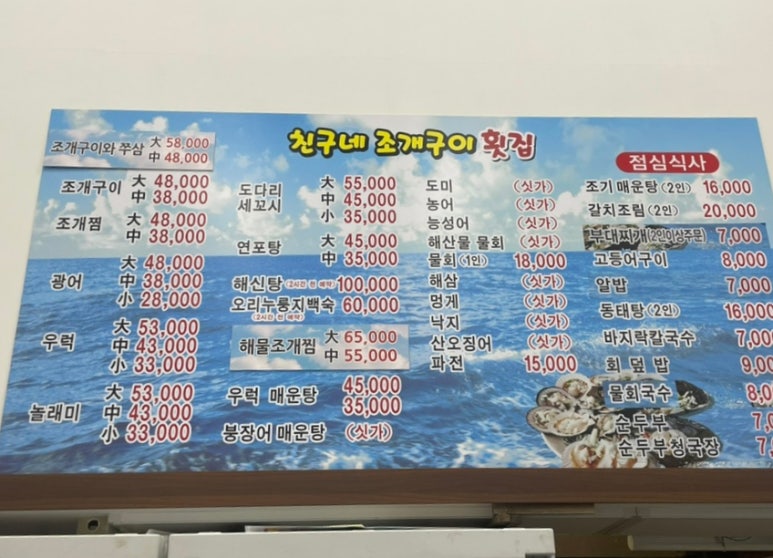 친구네 조개구이 횟집
조개구이와 쭈삼 大 58,000
中 48,000
조개구이 大 48,000
中 38,000
조개찜 大 48,000
中 38,000
광어 大 48,000
中 38,000
小 28,000
우럭 大 53,000
中 43,000
小 33,000
놀래미 大 53,000
中 43,000
小 33,000
도다리 세꼬시 大 55,000
中 45,000
小 35,000
연포탕 大 45,000
中 35,000
해신탕 (2시간 전 예약) 100,000
오리누룽지백숙 60,000
(2시간 전 예약)
해물조개찜 大 65,000
中 55,000
우럭 매운탕 45,000
35,000
붕장어 매운탕 (싯가)
도미 (싯가)
농어 (싯가)
능성어 (싯가)
해산물 물회 (싯가)
물회 (1인) 18,000
해삼 (싯가)
멍게 (싯가)
낙지 (싯가)
산오징어 (싯가)
파전 15,000
점심식사
조기 매운탕 (2인) 16,000
갈치조림 (2인) 20,000
부대찌개 (2인이상주문) 7,000
고등어구이 8,000
알밥 7,000
동태탕 (2인) 16,000
바지락칼국수 7,000
회 덮 밥 9,00
물회국수 8,0
순두부 7,0
순두부청국장 7,